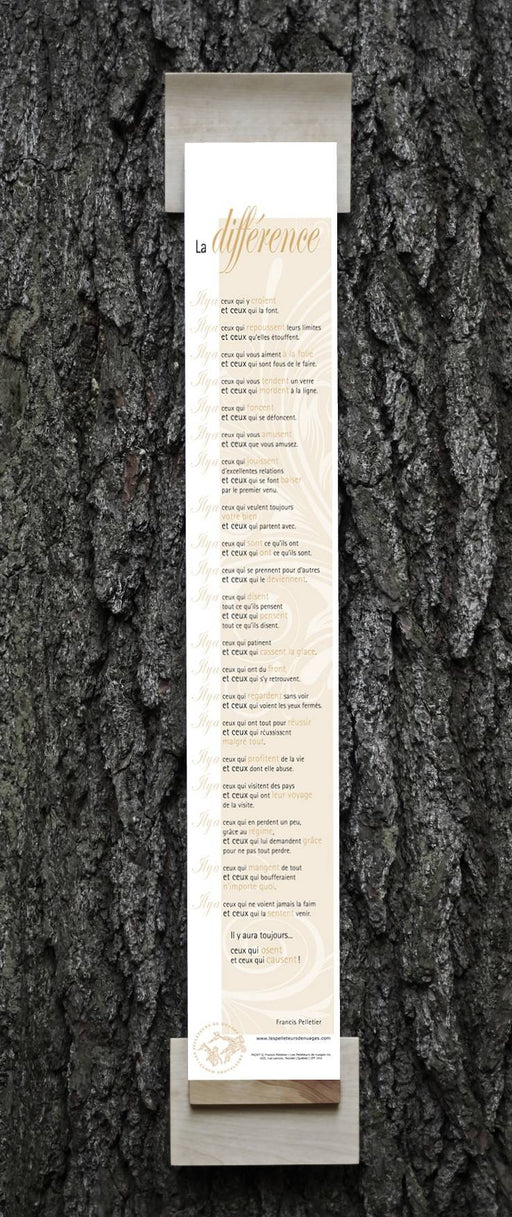 La différence
Il y a ceux qui y croient
et ceux qui la font.
Il y a ceux qui repoussent leurs limites
et ceux qu'elles étouffent.
Il y a ceux qui vous aiment à la folie
et ceux qui sont fous de le faire.
Il y a ceux qui vous tendent un verre
et ceux qui mordent à la ligne.
Il y a ceux qui foncent
et ceux qui se défoncent.
Il y a ceux qui vous amusent
et ceux que vous amusez.
Il y a ceux qui jouissent
d'excellentes relations
et ceux qui se font baiser
par le premier venu.
Il y a ceux qui veulent toujours
votre bien
et ceux qui partent avec.
Il y a ceux qui sont ce qu'ils ont
et ceux qui ont ce qu'ils sont.
Il y a ceux qui se prennent pour d'autres
et ceux qui le deviennent.
Il y a ceux qui disent
tout ce qu'ils pensent
et ceux qui pensent
tout ce qu'ils disent.
Il y a ceux qui patinent
et ceux qui cassent la glace.
Il y a ceux qui ont du front
et ceux qui s'y retrouvent.
Il y a ceux qui regardent sans voir
et ceux qui voient les yeux fermés.
Il y a ceux qui ont tout pour réussir
et ceux qui réussissent
malgré tout.
Il y a ceux qui profitent de la vie
et ceux dont elle abuse.
Il y a ceux qui visitent des pays
et ceux qui ont leur voyage
de la visite.
Il y a ceux qui en perdent un peu,
grâce au régime,
et ceux qui lui demandent grâce
pour ne pas tout perdre.
Il y a ceux qui mangent de tout
et ceux qui boufferaient
n'importe quoi.
Il y a ceux qui ne voient jamais la faim
et ceux qui la sentent venir.
Il y aura toujours...
ceux qui osent
et ceux qui causent !
Francis Pelletier
www.lespelleteursdenuages.com